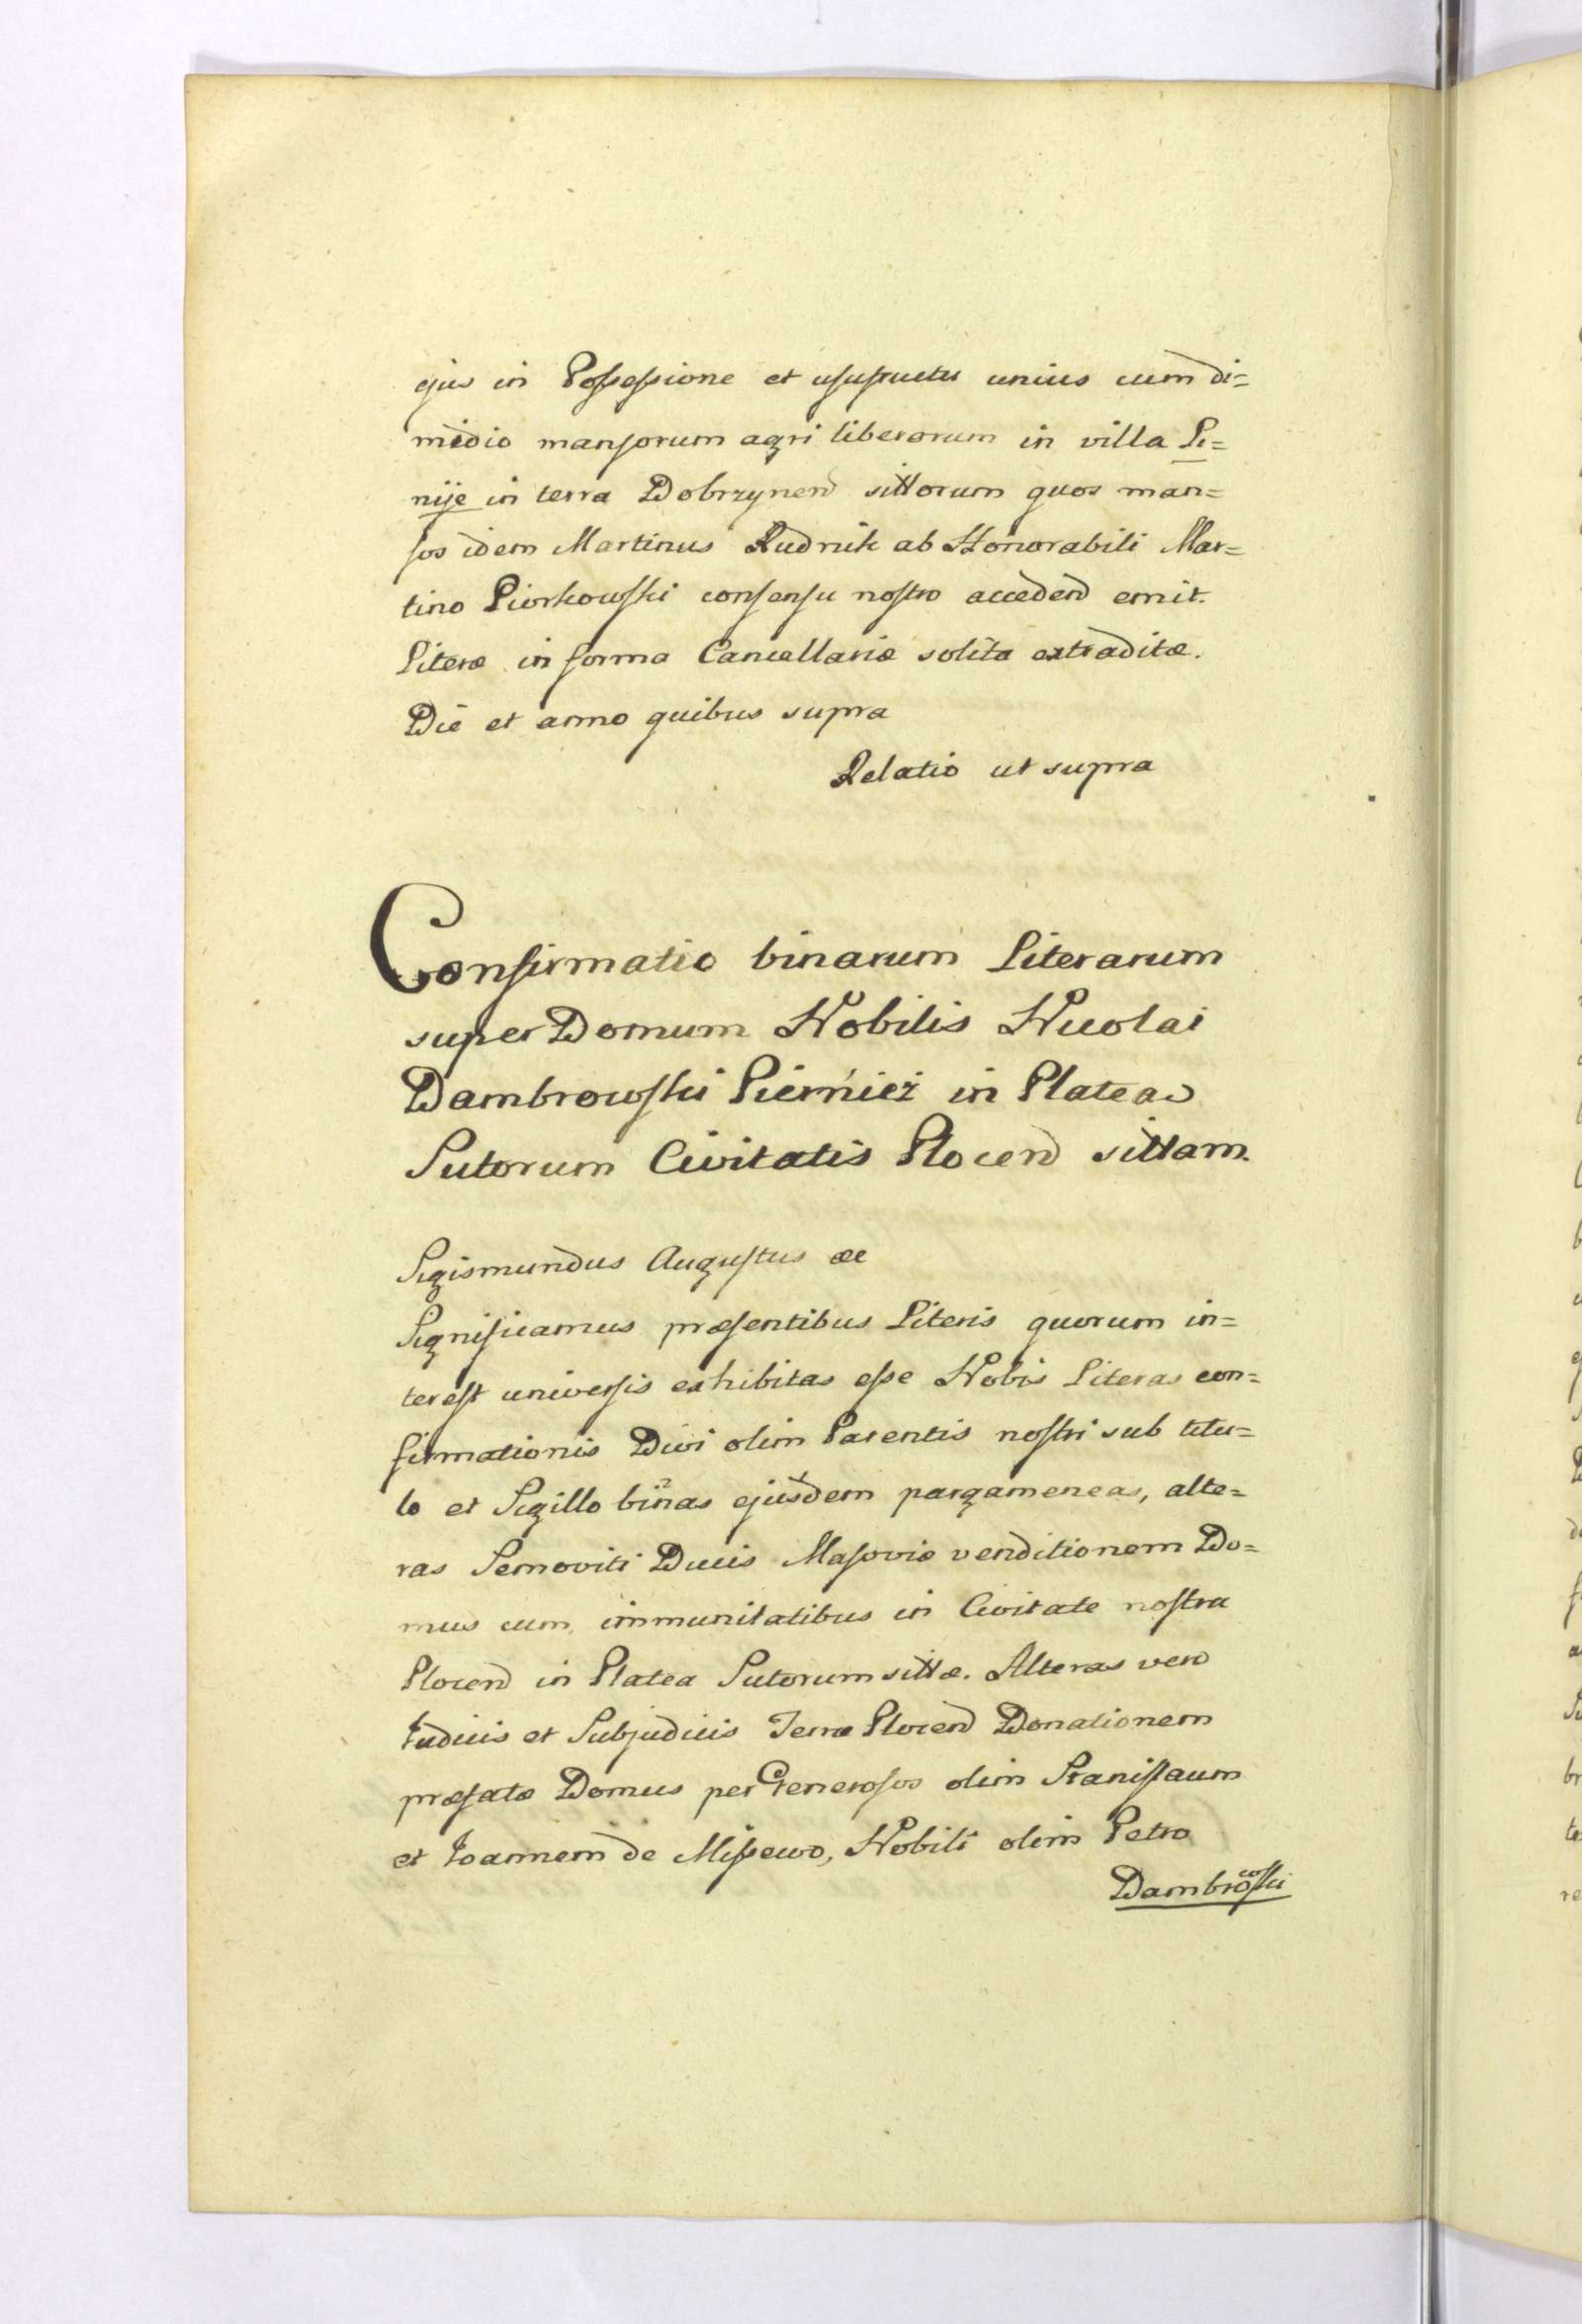 ejus in Possessione et usufructu unius cum di=
midio mansorum agri liberorum in villa Li=
nije in terra Dobrzynen sittorum quos man=
sos idem Martinus Rudnik ab Honorabili Mar=
tino Piorkowski consensu nostro acceden emit.
Literæ in forma Cancellariæ solita extraditæ.
Die et anno quibus supra
Relatio ut supra
Confirmatio binarum Literarum
super Domum Nobilis Nicolai
Dambrowski Pierniez in Platea
Sutorum Civitatis Plocen sittam.
Sigismundus Augustus æc
Significamus præsentibus Literis quorum in=
terest universis exhibitas esse Nobis Literas con=
firmationis Divi olim Parentis nostri sub titu=
lo et Sigillo binas ejusdem pargameneas, alte=
ras Semoviti Ducis Masoviæ venditionem Do=
mus cum immunitatibus in Civitate nostra
Plocen in Platea Sutorum sittæ. Alteras vero
Iudicis et Subjudicis Terræ Plocen Donationem
præfatæ Domus per Generosos olim Stanislaum
et Ioannem de Missewo, Nobili olim Petro
Dambrowski